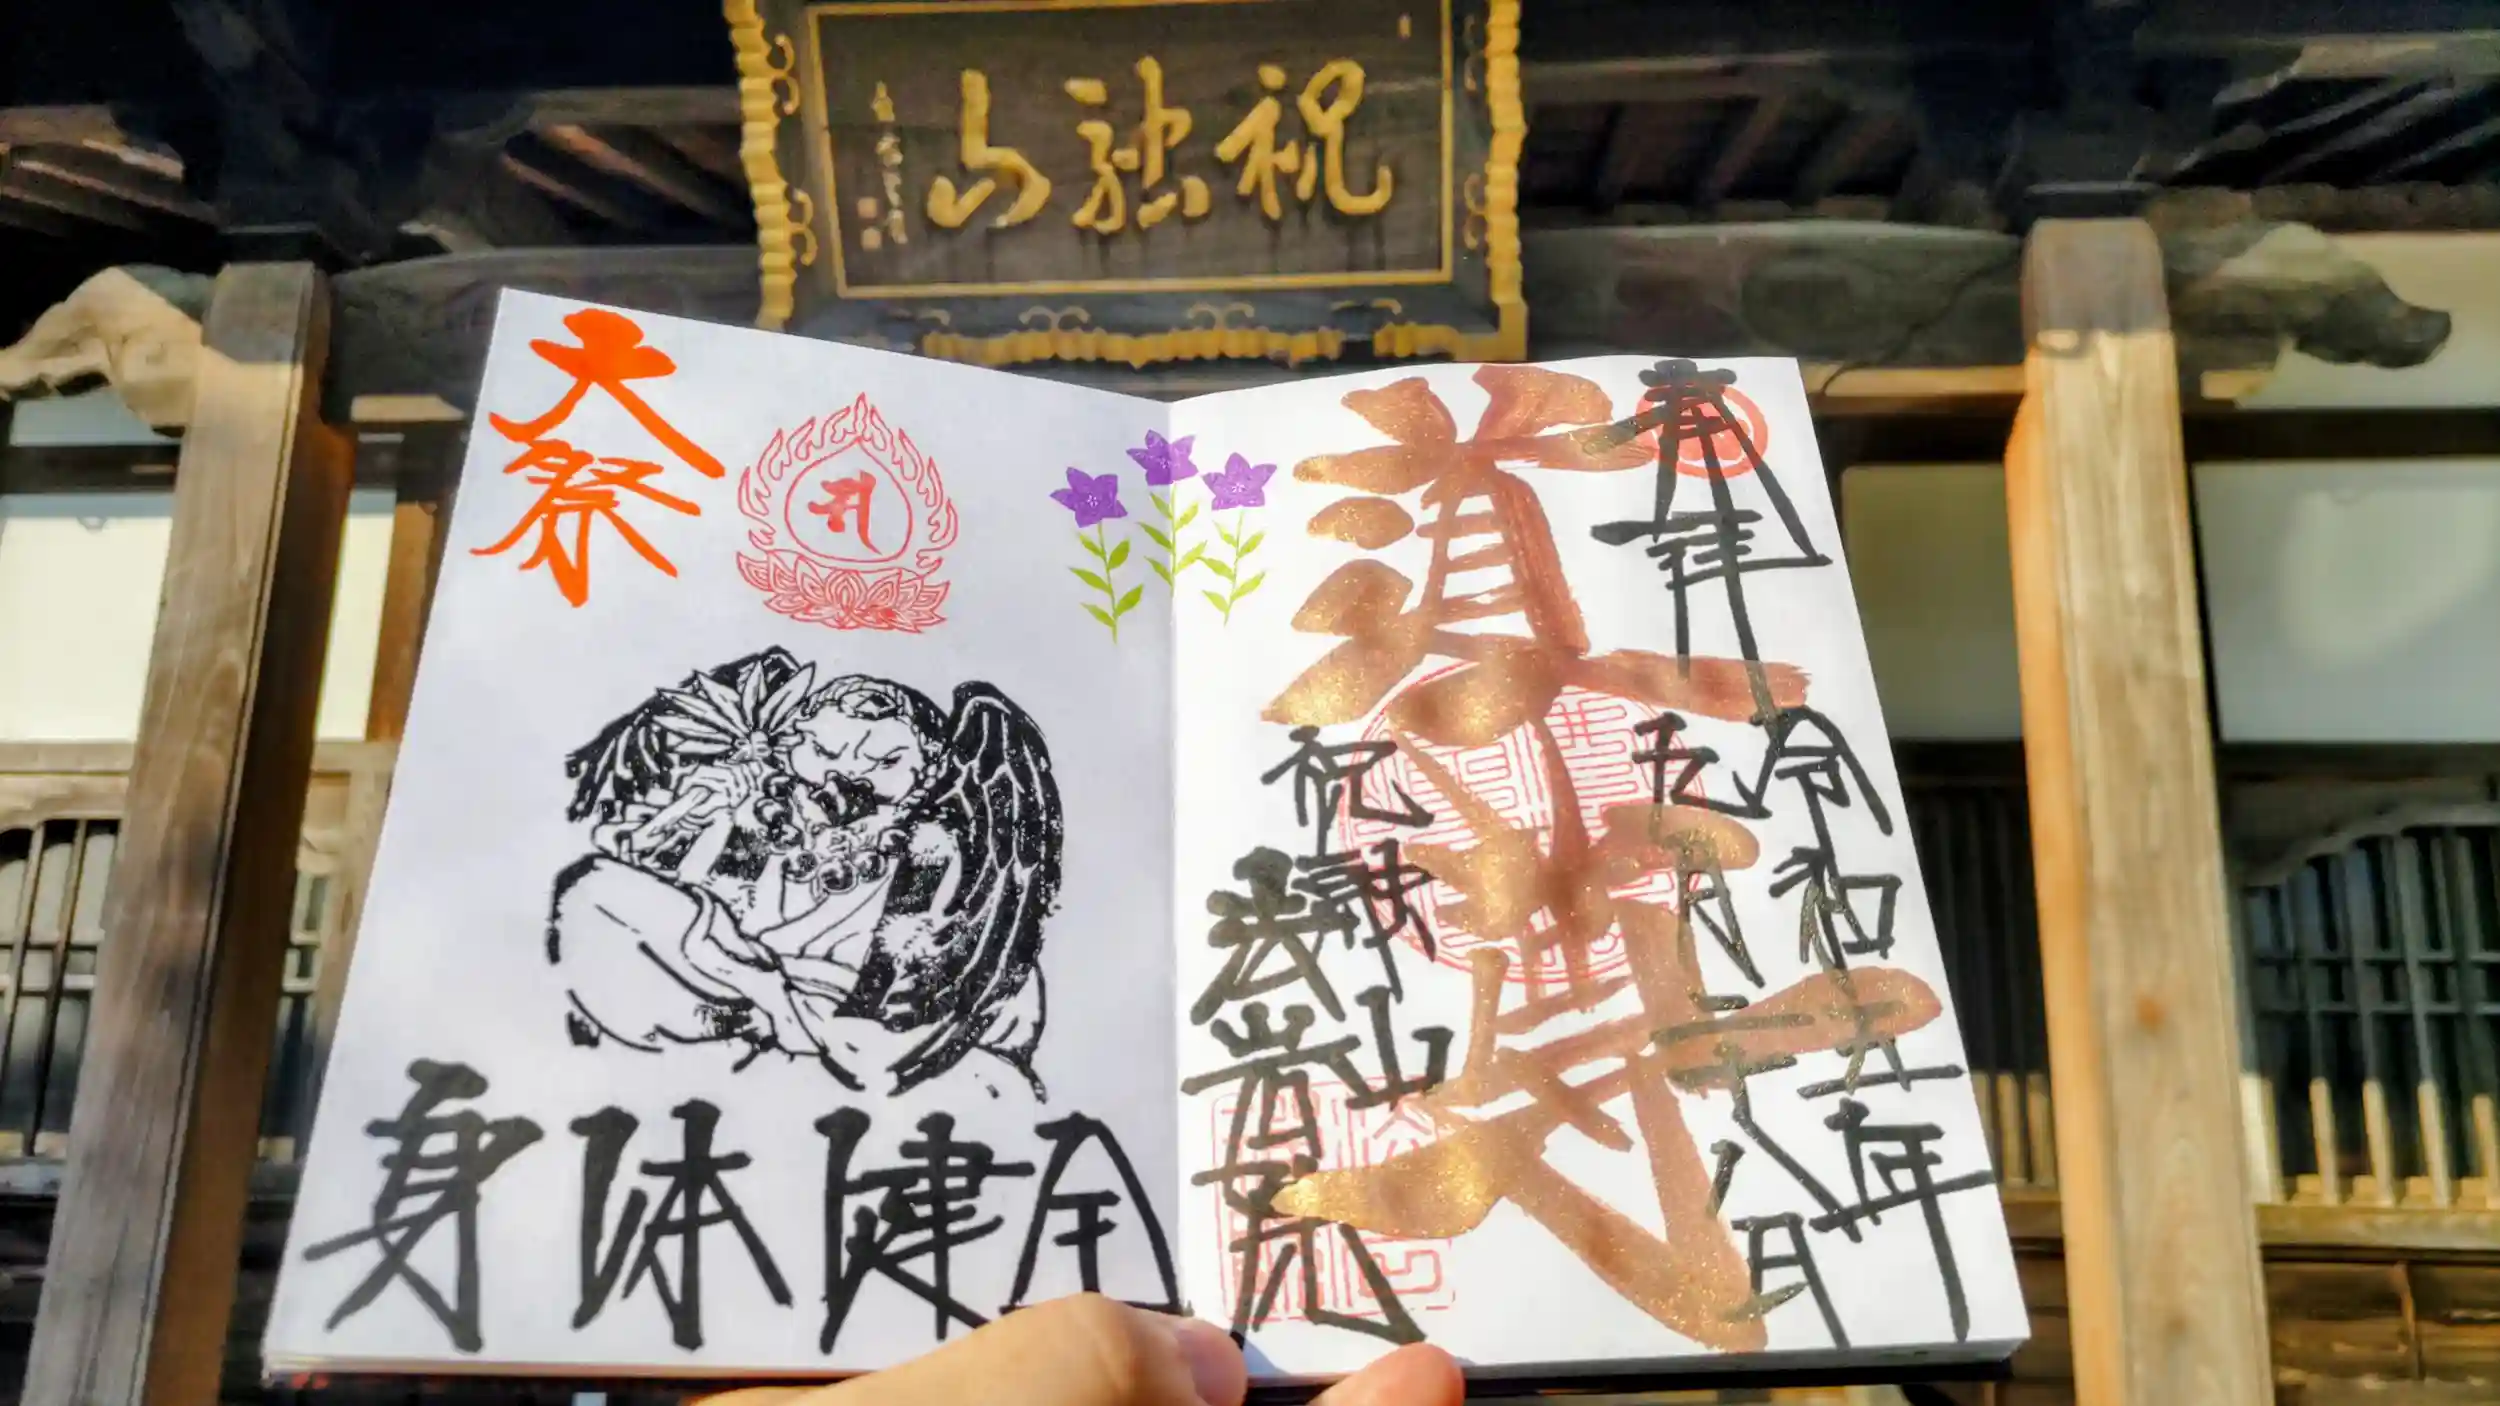 祝融山
大祭
身体健全
奉拝
令和五年
九月二十八日
道了尊
祝融山